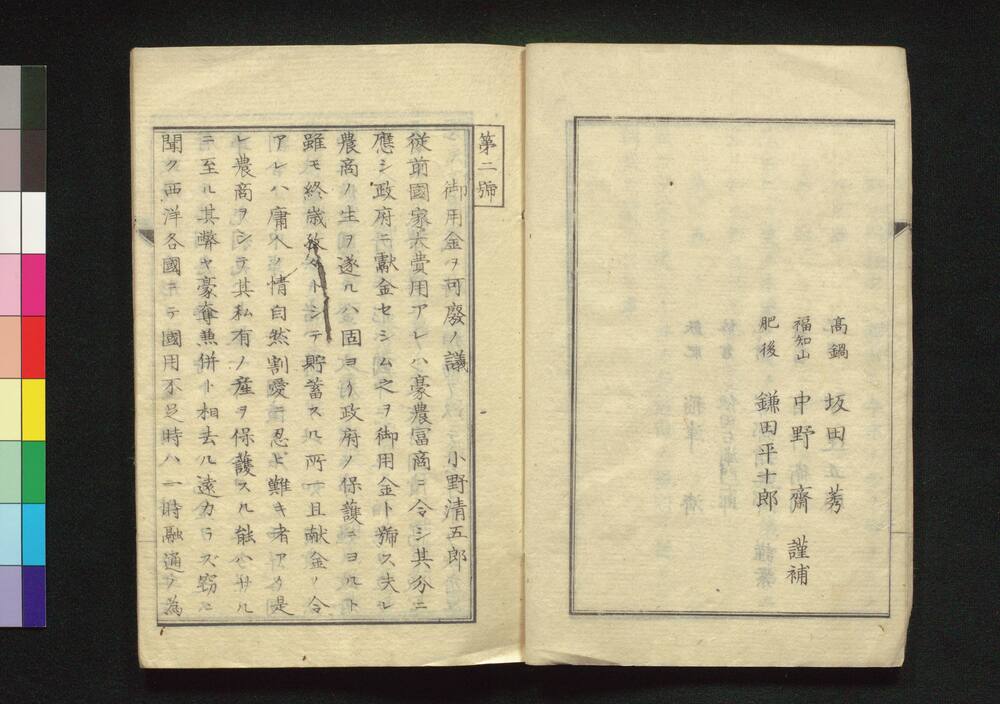 高鍋 坂田 莠
福知山 中野 齋 謹補
肥後 鎌田平十郎
第二號
御用金ヲ可廢ノ議 小野清五郎
從前國家大費用アレハ豪農冨商ニ令シ其分ニ
應シ政府ニ獻金セシム之ヲ御用金ト號ス夫レ
農商ノ生ヲ遂ルハ固ヨリ政府ノ保護ニヨルト
雖モ終歳孜々トシテ貯蓄スル所一旦献金ノ令
アレハ庸人ノ情自然割愛ニ忍ヒ難キ者アリ是
レ農商ヲシテ其私有ノ産ヲ保護スル能ハサル
ニ至ル其弊ヤ豪奪兼併ト相去ル遠カラズ窃ニ
聞ク西洋各國ニテ國用不足時ハ一時融通ノ為